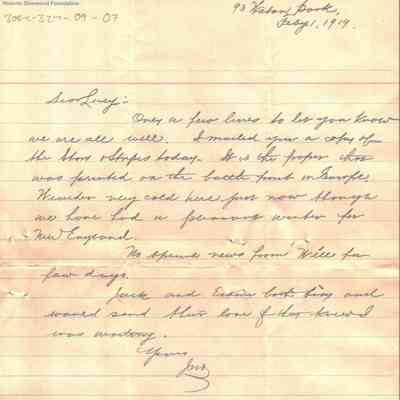 Historic Glenwood Foundation
93 Nason Book,
Feby 1, 1919.
Dear Lucy:-
Only a few lines to let you know
we are all well. I mailed you a copy of
the Stars & Stripes today. It is the paper that
was printed on the battle front in Europe.
Weather very cold here just now though
we have had a pleasant winter for
New England.
No news from Will for
few days.
Jack and both busy and
would send their love if they knew I
was writing.
Yours
Jno